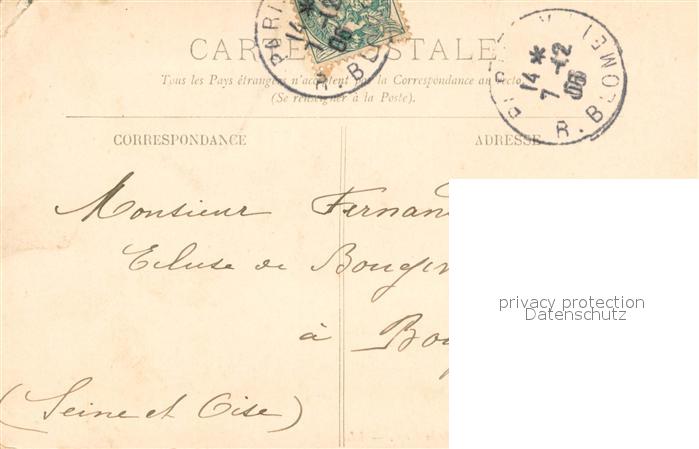 CARTE POSTALE
Tous les Pays étrangers n'acceptent pas la Correspondance au recto
(Se renseigner à la Poste).
CORRESPONDANCE
ADRESSE
PARI
14 *
7 -12
06
R. B
14 *
7 -12
06
R. B
Monsieur Fernan
Ecluse de Bougiv
à Boug
(Seine et Oise)
privacy protection
Datenschutz